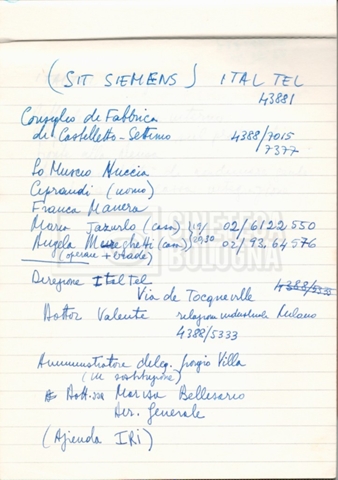 (SIT SIEMENS) ITALTEL
43881
Consiglio di Fabbrica
di Castelletto-Settimo 4388/7015
7377
Lo Muscio Nuccia
Ciprandi (uomo)
Franca Manera
Maria (casa) 19/ 02/6122550
Angela (casa) 20,30 02/9364576
(operaie + strade)
Direzione Italtel 4388/5333
Via de Tocqueville
Dottor Valente relazioni industriali Milano
4388/5333
Amministratore deleg. Giorgio Villa
(in sostituzione)
Dott.ssa Marisa Bellisario
Dir. Generale
(Azienda IRI)
CINETECA
BOLOGNA